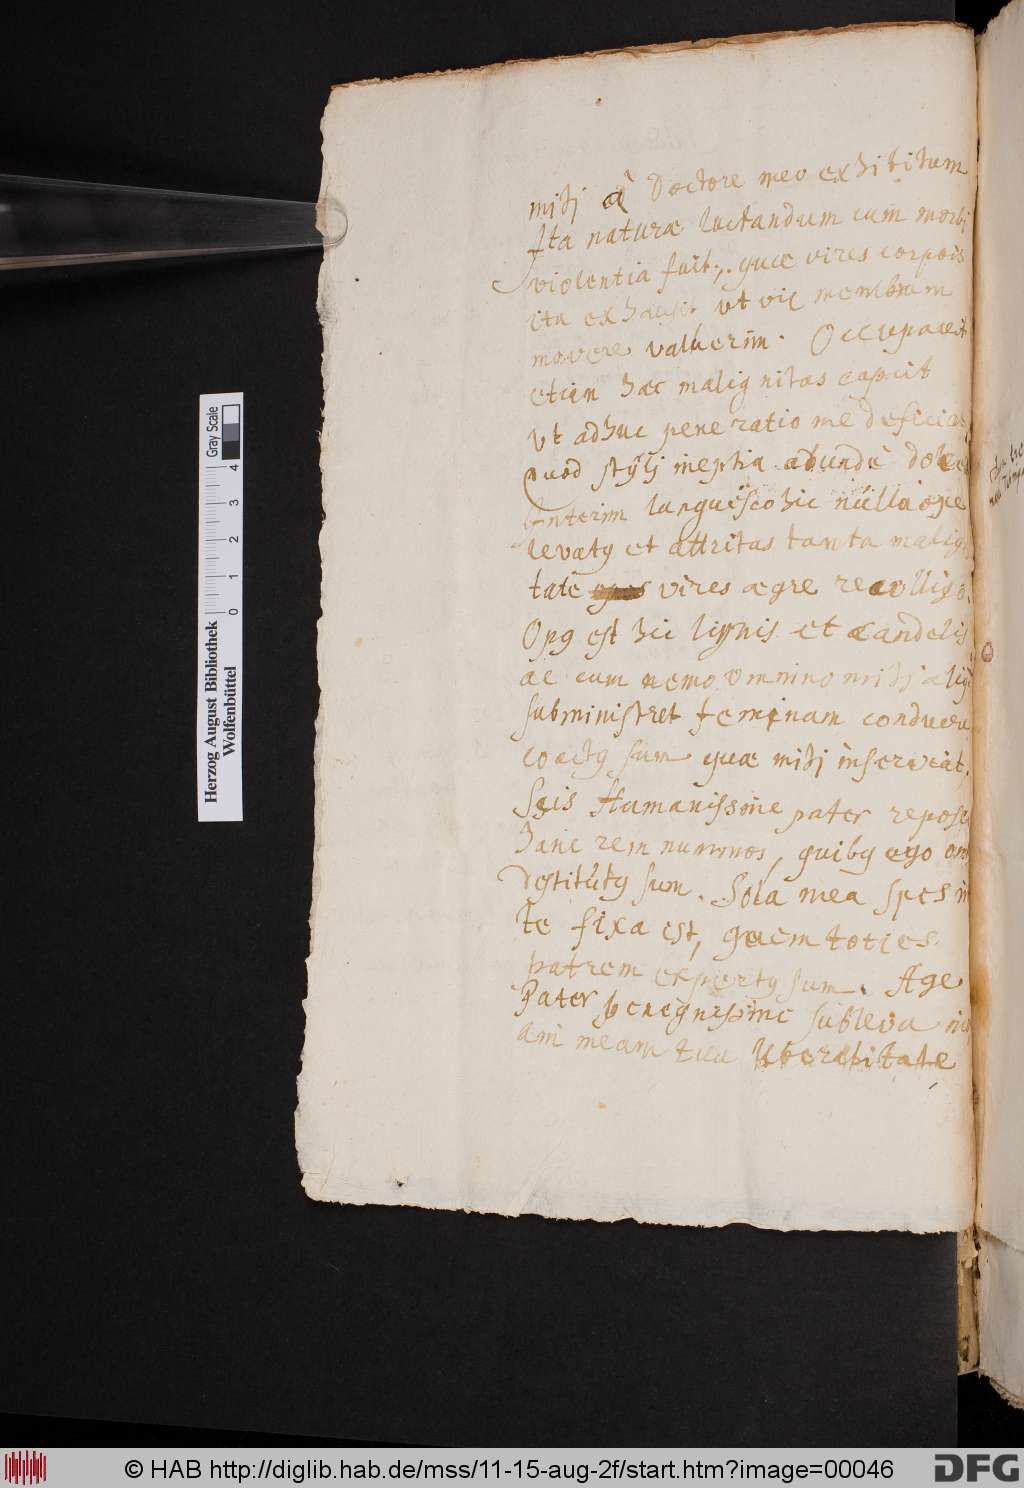 mihj à Doctore meo exhibitum
Ita naturæ luctandum cum morbi
violentia fuit, quæ vires corpois
ita exhausit ut vix membrum
movere valuerim. Occupavit
etiam hæc malignitas caput
Vt adhuc pene ratio me deficiat
quod stÿlj ineptia abundè docet
Interim languesco hic nulla ope
levatg et attritas tanta malig
tate vires ægre recolligo.
Opg est hic lignis et candelis
ac cum nemo omnino mihj
subministret feminam conducere
coactg sum quæ mihj inserviat,
Scis Humanissime pater repose
hanc rem nummos, quibg ego om
destitutg sum. Sola mea spes in
te fixa est, quem toties
patrem expertg sum. Age
Pater benegnissime subleva
am meam tua
Gray Scale
0 1 2 3 4
Herzog August Bibliothek
Wolfenbüttel
© HAB http://diglib.hab.de/mss/11-15-aug-2f/start.htm?image=00046
DFG